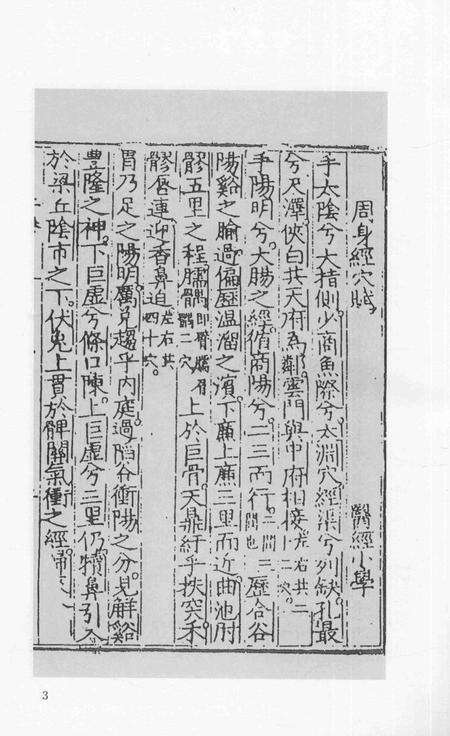 周身經穴賦 醫經小學
手太陰兮大指側少商魚際兮太淵穴經渠兮列缺孔最
兮尺澤俠白共天府為鄰雲門與中府相接左右共二十二穴
手陽明兮大腸之經循商陽兮二三而行二間三間也歷合谷
陽谿之腧過偏歷温溜之濱下廉上廉三里而近曲池肘
髎五里之程臑髃上於巨骨天鼎紆乎扶突禾
髎唇連迎香鼻迫左右共四十穴
胃乃足之陽明厲兌趨乎內庭過陷谷衝陽之分見解谿
豐隆之神下巨虛兮條口陳上巨虛兮三里仍犢鼻引入
於梁丘陰市之下伏兔上貫於髀關氣衝之經歸
3